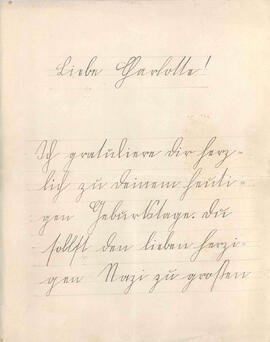 Liebe Charlotte!
Ich gratuliere dir herz-
lich zu deinem heuti-
gen Geburtstage. Du
sollst den lieben herzi-
gen Nazi zu großen